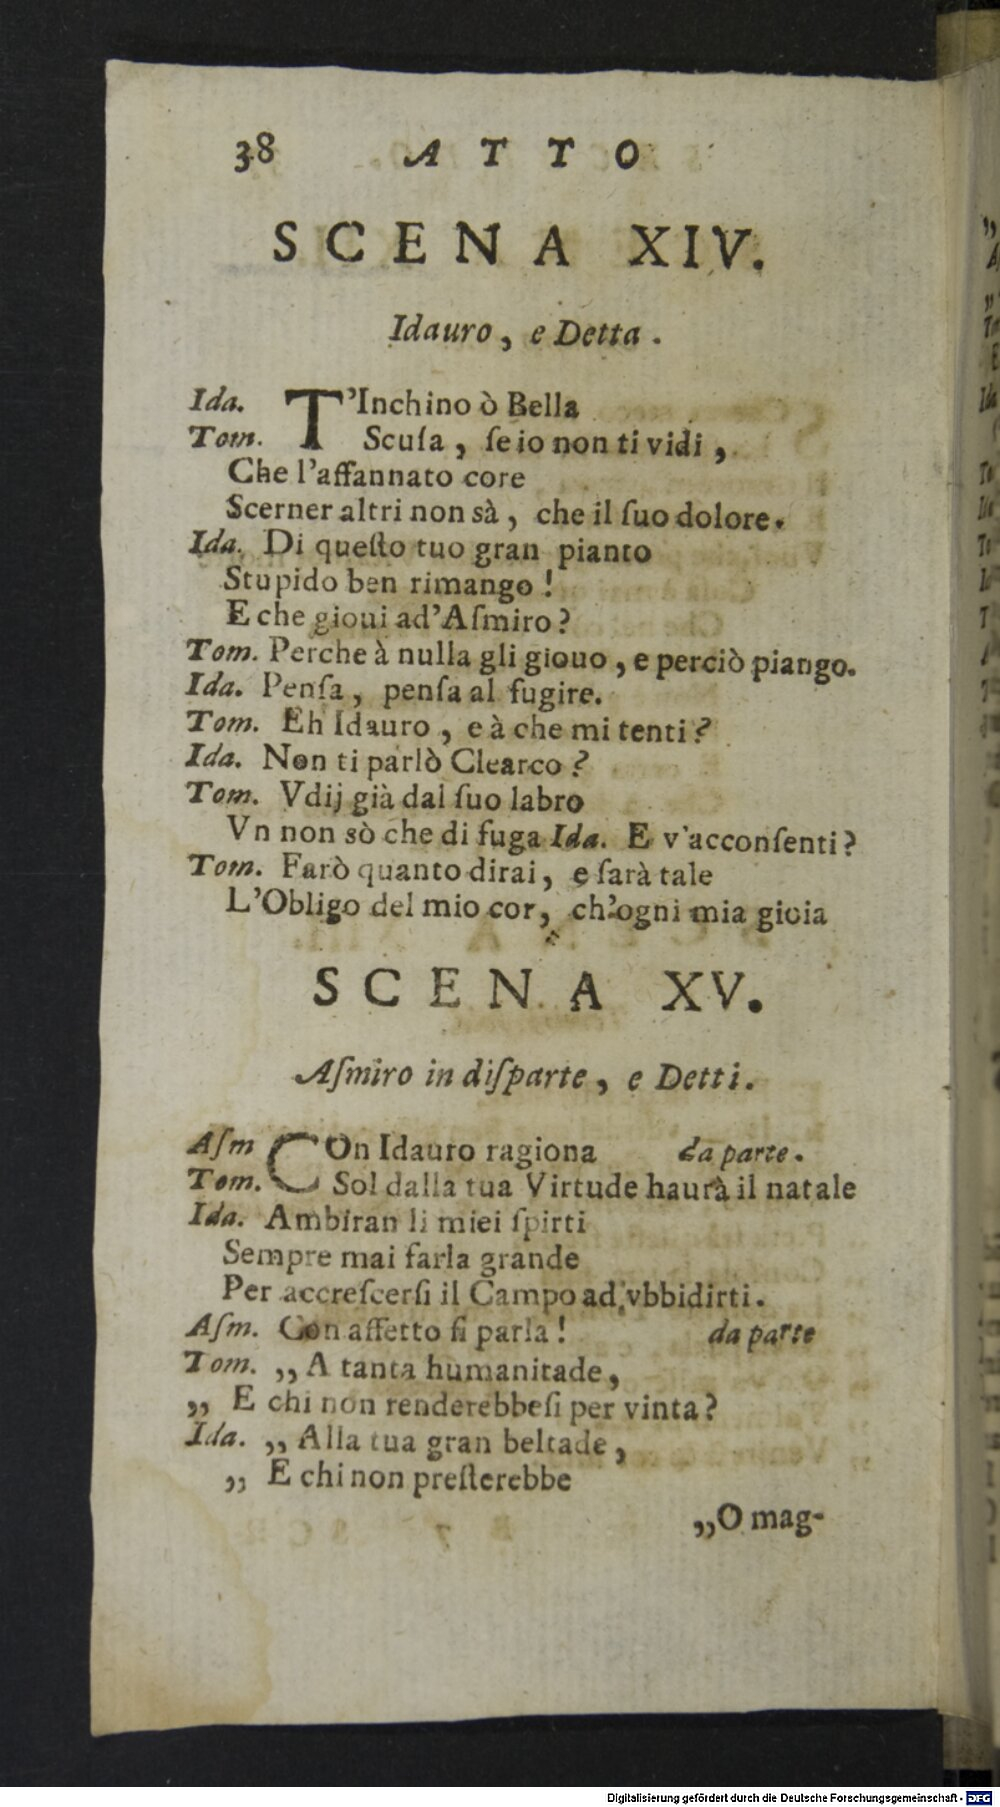 38 ATTO
SCENA XIV.
Idauro, e Detta.
Ida. T'Inchino ò Bella
Tom. Scuſa, ſe io non ti vidi,
Che l'affannato core
Scerner altri non sà, che il ſuo dolore.
Ida. Di queſto tuo gran pianto
Stupido ben rimango!
E che gioui ad'Aſmiro?
Tom. Perche à nulla gli giouo, e perciò piango.
Ida. Penſa, penſa al fugire.
Tom. Eh Idauro, e à che mi tenti?
Ida. Non ti parlò Clearco?
Tom. Vdij già dal ſuo labro
Vn non sò che di fuga Ida. E v'acconſenti?
Tom. Farò quanto dirai, e ſarà tale
L'Obligo del mio cor, ch'ogni mia gioia
SCENA XV.
Aſmiro in diſparte, e Detti.
Aſm COn Idauro ragiona da parte.
Tom. Sol dalla tua Virtude haurà il natale
Ida. Ambiran li miei ſpirti
Sempre mai farla grande
Per accreſcerſi il Campo ad vbbidirti.
Aſm. Con affetto ſi parla! da parte
Tom. ,, A tanta humanitade,
,, E chi non renderebbeſi per vinta?
Ida. ,, Alla tua gran beltade,
,, E chi non preſterebbe
,,O mag-
Digitalisierung gefördert durch die Deutsche Forschungsgemeinschaft - DFG